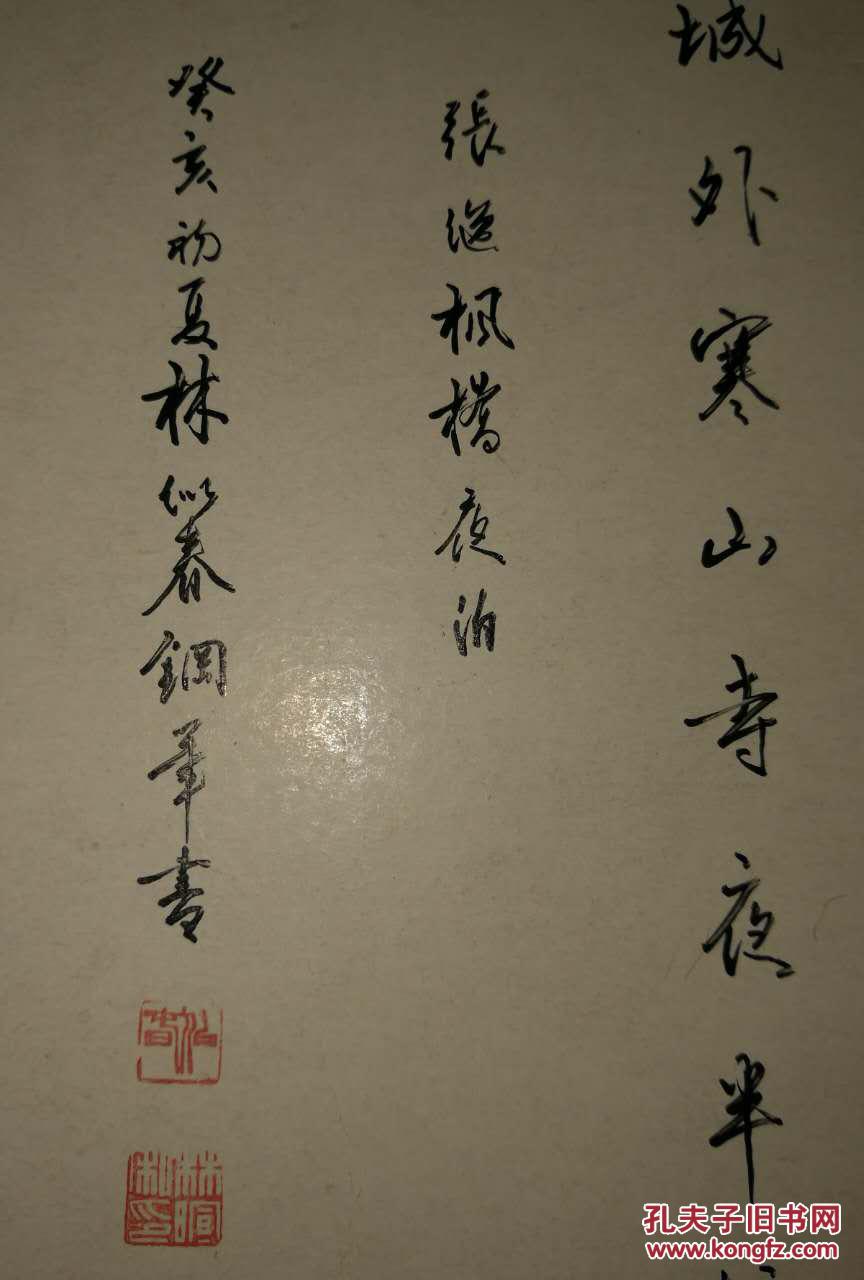 城外寒山寺夜半
張继枫橋夜泊
癸亥初夏林似春鋼笔書
孔夫子旧书网
www.kongfz.com